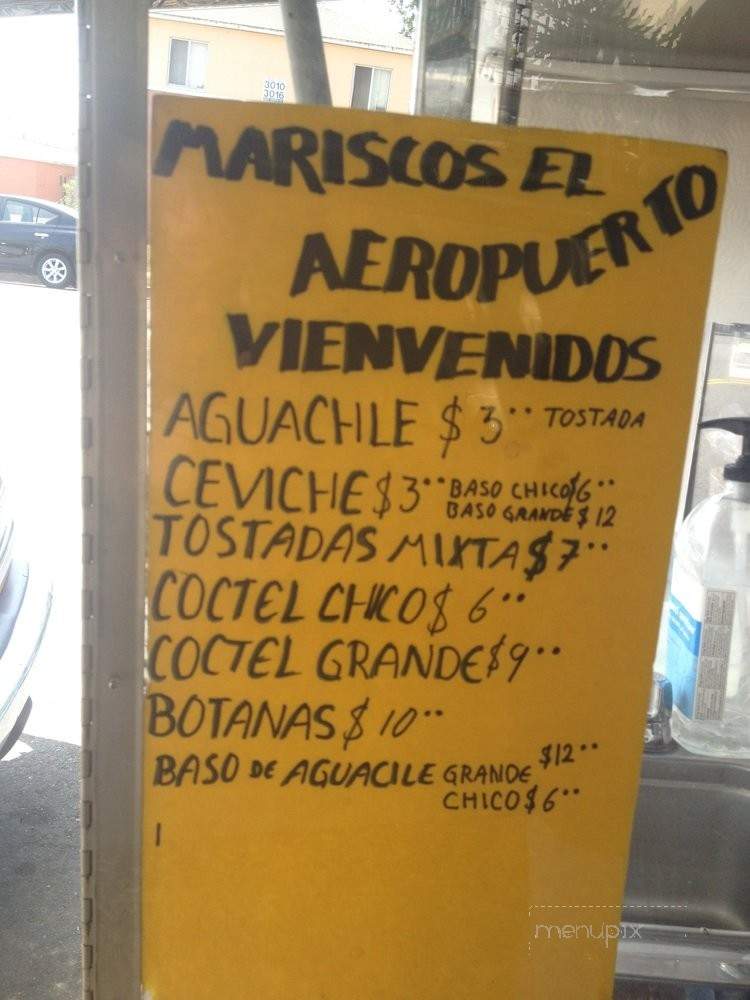 3010
3016
MARISCOS EL
AEROPUERTO
VIENVENIDOS
AGUACHILE $3.. TOSTADA
CEVICHE $3.. BASO CHICO $6..
BASO GRANDE $12
TOSTADAS MIXTA $7..
COCTEL CHICO $6..
COCTEL GRANDE $9..
BOTANAS $10..
BASO DE AGUACILE GRANDE $12..
CHICO $6..
menupix